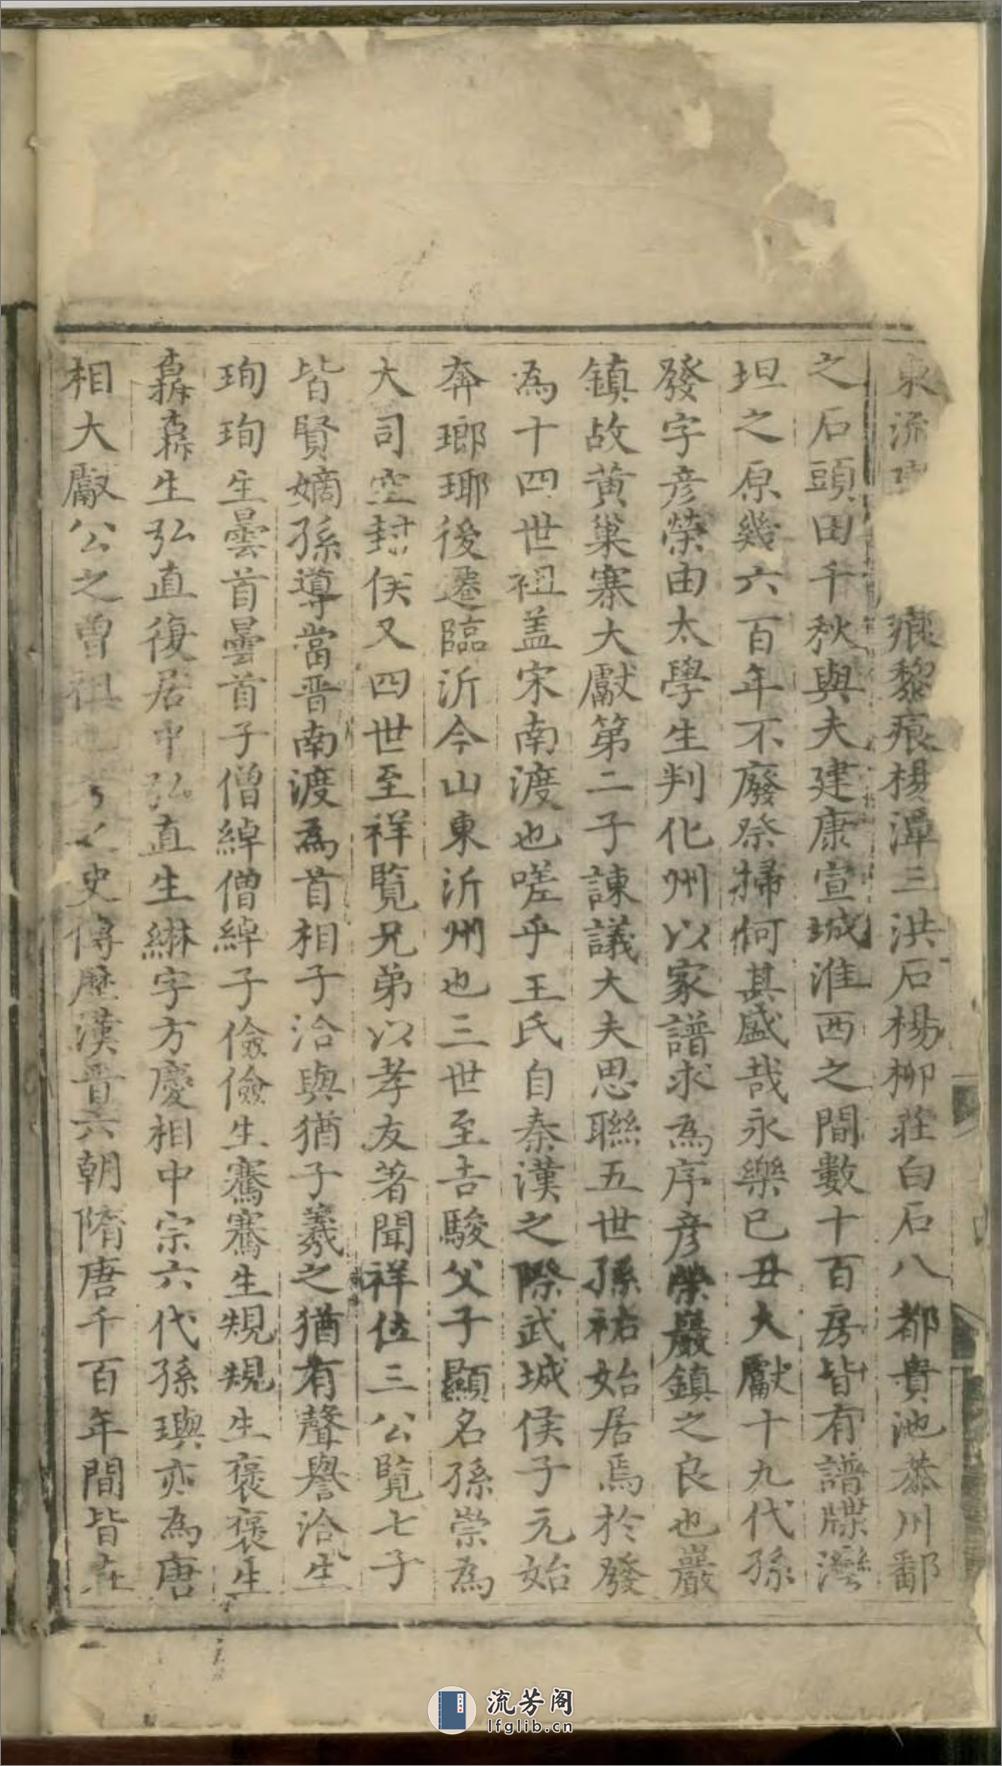 東流
痕黎痕楊潭三洪石楊柳莊白石八都貴池恭川鄱
之石頭田千秋與夫建康宣城淮西之間數十百房皆有譜牒灣
坦之原幾六百年不廢祭掃何其盛哉永樂己丑大獻十九代孫
發字彥榮由太學生判化州以家譜求為序彥榮嚴鎮之良也嚴
鎮故黃巢寨大獻第二子諫議大夫思聯五世孫祐始居焉於發
為十四世祖盖宋南渡也嗟乎王氏自秦漢之際武城侯子元始
奔瑯琊後遷臨沂今山東沂州也三世至吉駿父子顯名孫崇為
大司空封侯又四世至祥覽兄弟以孝友著聞祥位三公覽七子
皆賢嫡孫導當晋南渡為首相子洽與猶子羲之猶有聲譽洽生
珣珣生曇首曇首子僧綽僧綽子儉儉生騫騫生規規生褒褒生
鼒鼒生弘直復居中弘直生綝字方慶相中宗六代孫璵亦為唐
相大獻公之曾祖之史傳歷漢晋六朝隋唐千百年間皆在
流芳阁
lfglib.cn